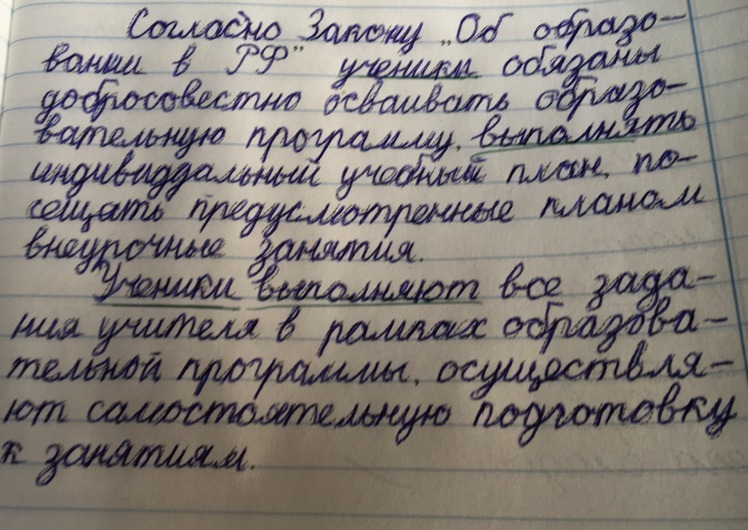 Согласно Закону „Об образо-
вании в РФ" ученики обязаны
добросовестно осваивать образо-
вательную программу, выполнять
индивиддальный учебный план, по-
сещать предусмотренные планом
внеурочные занятия.
Ученики выполняют все зада-
ния учителя в рамках образова-
тельной программы, осуществля-
ют самостоятельную подготовку
к занятиям.